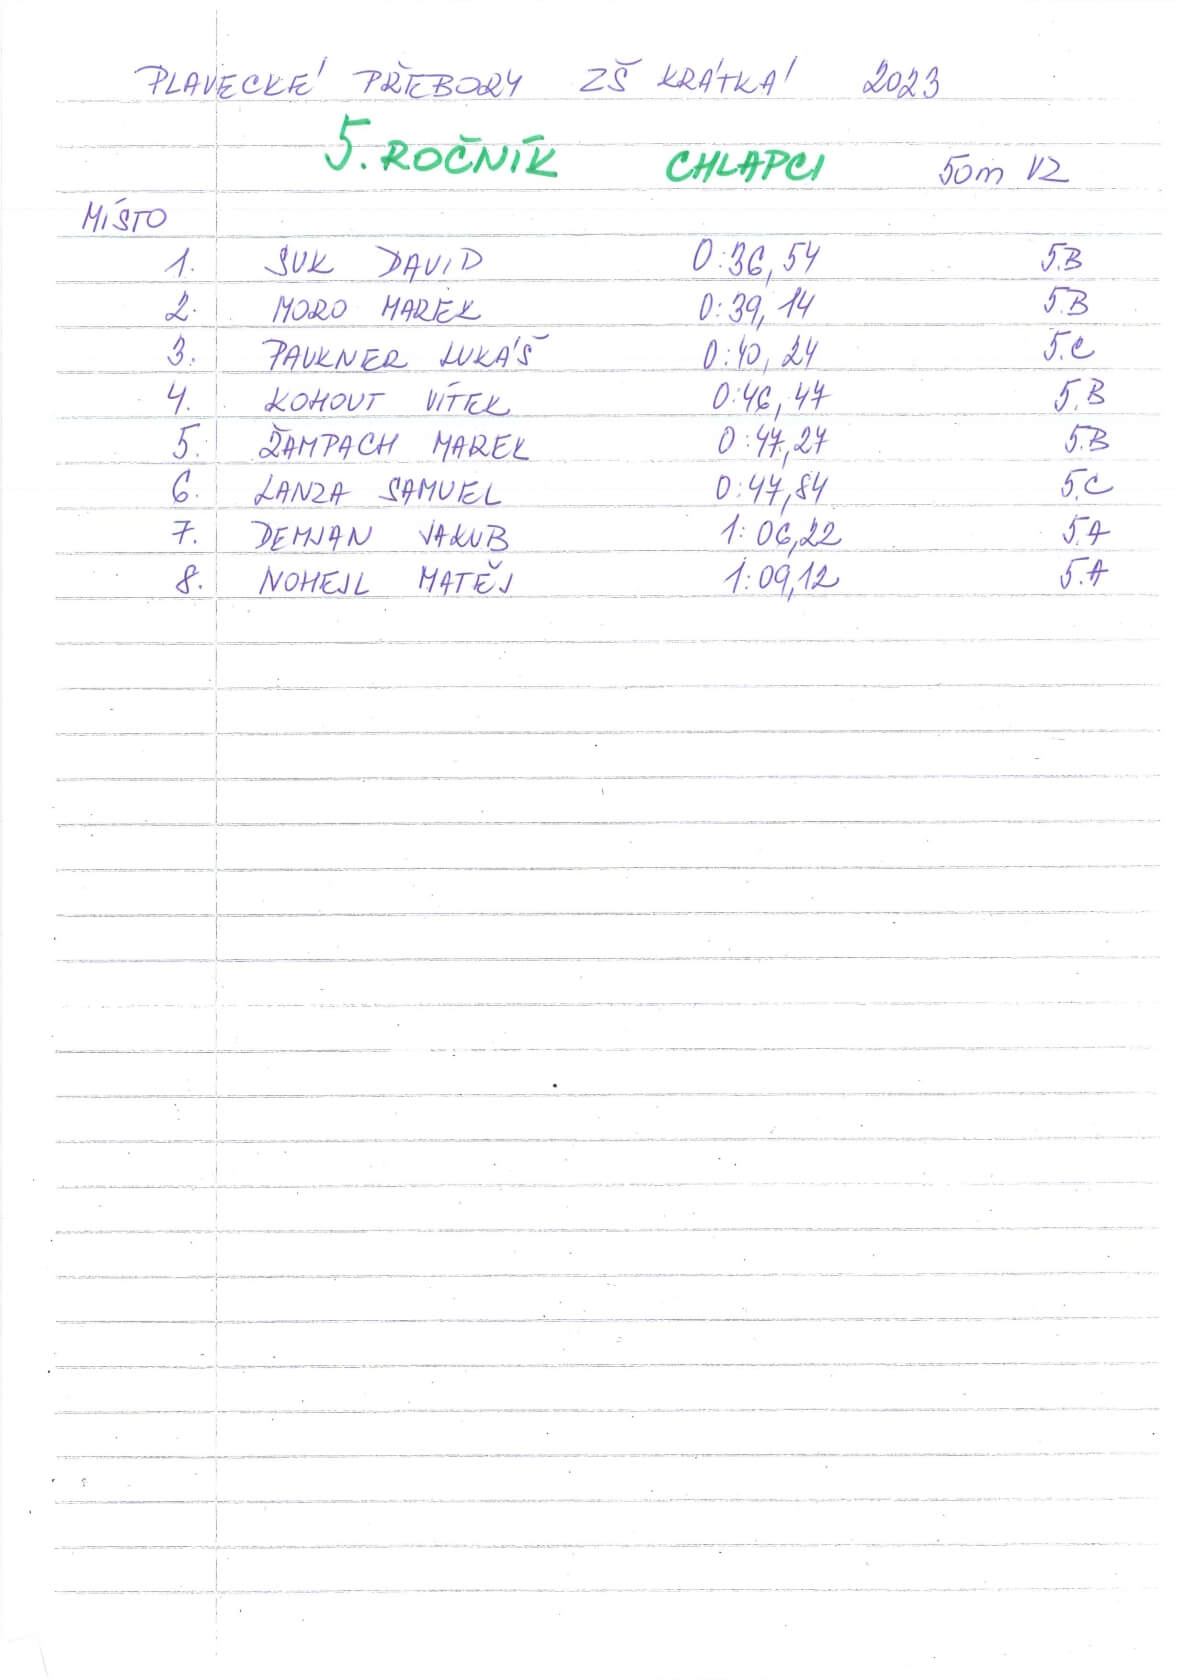 PLAVECKÉ PŘEBORY ZŠ KRÁTKÁ 2023
5. ROČNÍK CHLAPCI 50m VZ
MÍSTO
1. SUK DAVID 0:36,54 5.B
2. MORO MAREK 0:39,14 5.B
3. PAUKNER LUKÁŠ 0:40,24 5.C
4. KOHOUT VÍTEK 0:46,47 5.B
5. ŽAMPACH MAREK 0:47,27 5.B
6. LANZA SAMUEL 0:47,84 5.C
7. DEMJAN JAKUB 1:06,22 5.A
8. NOHEJL MATĚJ 1:09,12 5.A